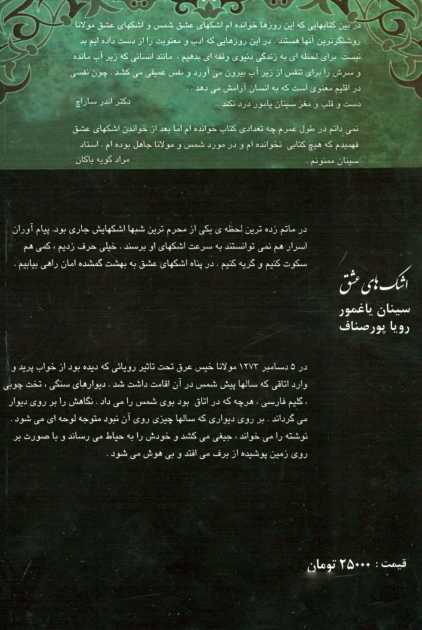 در بین کتابهایی که این روزها خوانده ام اشکهای عشق شمس و اشکهای عشق مولانا
روشنگرترین آنها هستند . در این روزهایی که ادب و معنویت را از دست داده ایم بد
نیست برای لحظه ای به زندگی دنیوی وقفه ای بدهیم ، مانند انسانی که زیر آب مانده
و سرش را برای تنفس از زیر آب بیرون می آورد و نفس عمیقی می کشد . چون نفسی
در اقلیم معنوی است که به انسان آرامش می دهد ..
دست و قلب و مغز سینان یامور درد نکند .
دکتر اندر ساراچ
نمی دانم در طول عمرم چه تعدادی کتاب خوانده ام اما بعد از خواندن اشکهای عشق
فهمیدم که هیچ کتابی نخوانده ام و در مورد شمس و مولانا جاهل بوده ام . استاد
سینان ممنونم .
مراد گویه باکان
در ماتم زده ترین لحظه ی یکی از محرم ترین شبها اشکهایش جاری بود. پیام آوران
اسرار هم نمی توانستند به سرعت اشکهای او برسند . خیلی حرف زدیم ، کمی هم
سکوت کنیم و گریه کنیم . در پناه اشکهای عشق به بهشت گمشده امان راهی بیابیم .
اشک های عشق
سینان یاغمور
رویا پورصناف
در ۵ دسامبر ۱۲۷۳ مولانا خیس عرق تحت تاثیر رویائی که دیده بود از خواب پرید و
وارد اتاقی که سالها پیش شمس در آن اقامت داشت شد . دیوارهای سنگی ، تخت چوبی
، کلیم فارسی ، هرچه که در اتاق بود بوی شمس را می داد . نگاهش را بر روی دیوار
می گرداند . بر روی دیواری که سالها چیزی روی آن نبود متوجه لوحه ای می شود .
نوشته را می خواند ، جیغی می کشد و خودش را به حیاط می رساند و با صورت بر
روی زمین پوشیده از برف می افتد و بی هوش می شود .
قیمت : ۲۵۰۰۰ تومان